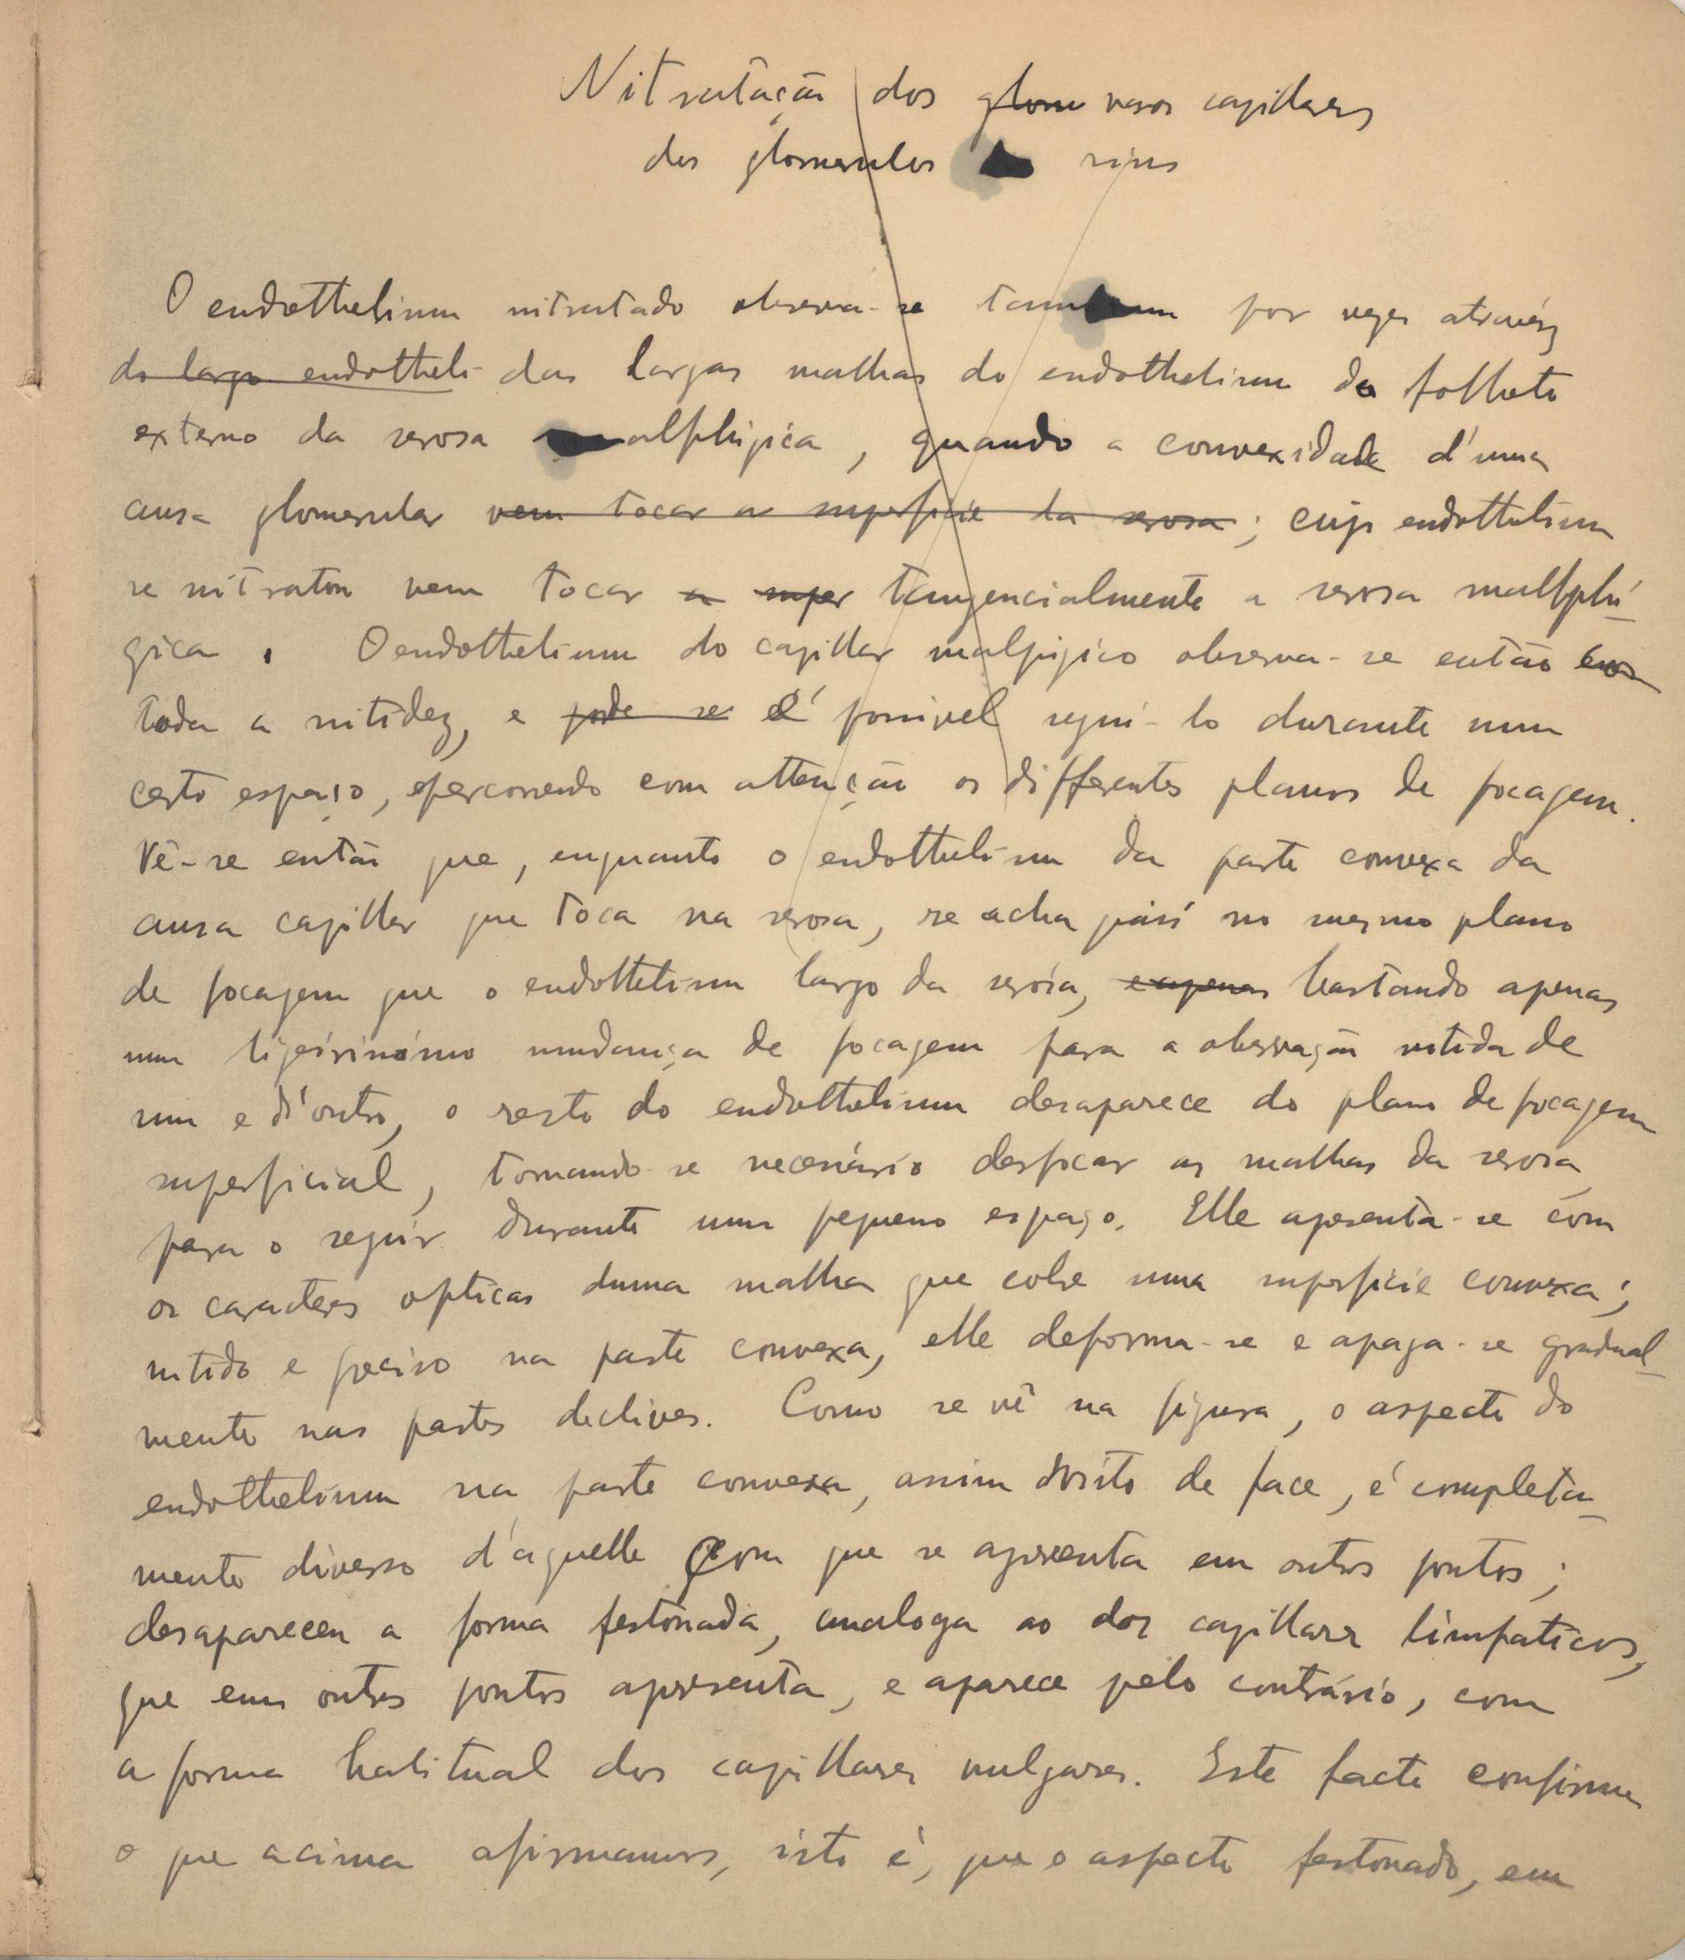 Nitratação dos glom vasos capillares
dos glomerulos rins
O endothelium nitratado observa-se tambem por vezes atravéz
do largo endotheli- das largas malhas do endothelium do folheto
externo da serosa malphigica, quando a convexidade d'uma
ansa glomerular vem tocar a superficie da serosa; cujo endothelium
se nitratou vem tocar a super tangencialmente a serosa mallphi-
gica. O endothelium do capillar malpigico observa-se então com
toda a nitidez, e pode se é possivel segui-lo durante um
certo espaço, percorrendo com attenção os differentes planos de focagem.
Vê-se então que, enquanto o endothelium da parte convexa da
ansa capillar que toca na serosa, se acha quasi no mesmo plano
de focagem que o endothelium largo da serosa, e apenas bastando apenas
uma ligeirissima mudança de focagem para a observação nitida de
um e d'outro, o resto do endothelium desaparece do plano de focagem
superficial, tornando-se necessário desfocar as malhas da serosa
para o seguir durante um pequeno espaço. Elle apresenta-se com
os caracteres opticos duma malha que cobre uma superficie convexa;
nitido e preciso na parte convexa, elle deforma-se e apaga-se gradual-
mente nas partes declives. Como se vê na figura, o aspecto do
endothelium na parte convexa, assim visto de face, é completa-
mente diverso d'aquelle com que se apresenta em outros pontos;
desapareceu a forma festonada, analoga ao dos capillares limfaticos,
que em outros pontos apresenta, e aparece pelo contrário, com
a forma habitual dos capillares vulgares. Este facto confirma
o que acima afirmamos, isto é, que o aspecto festonado, em